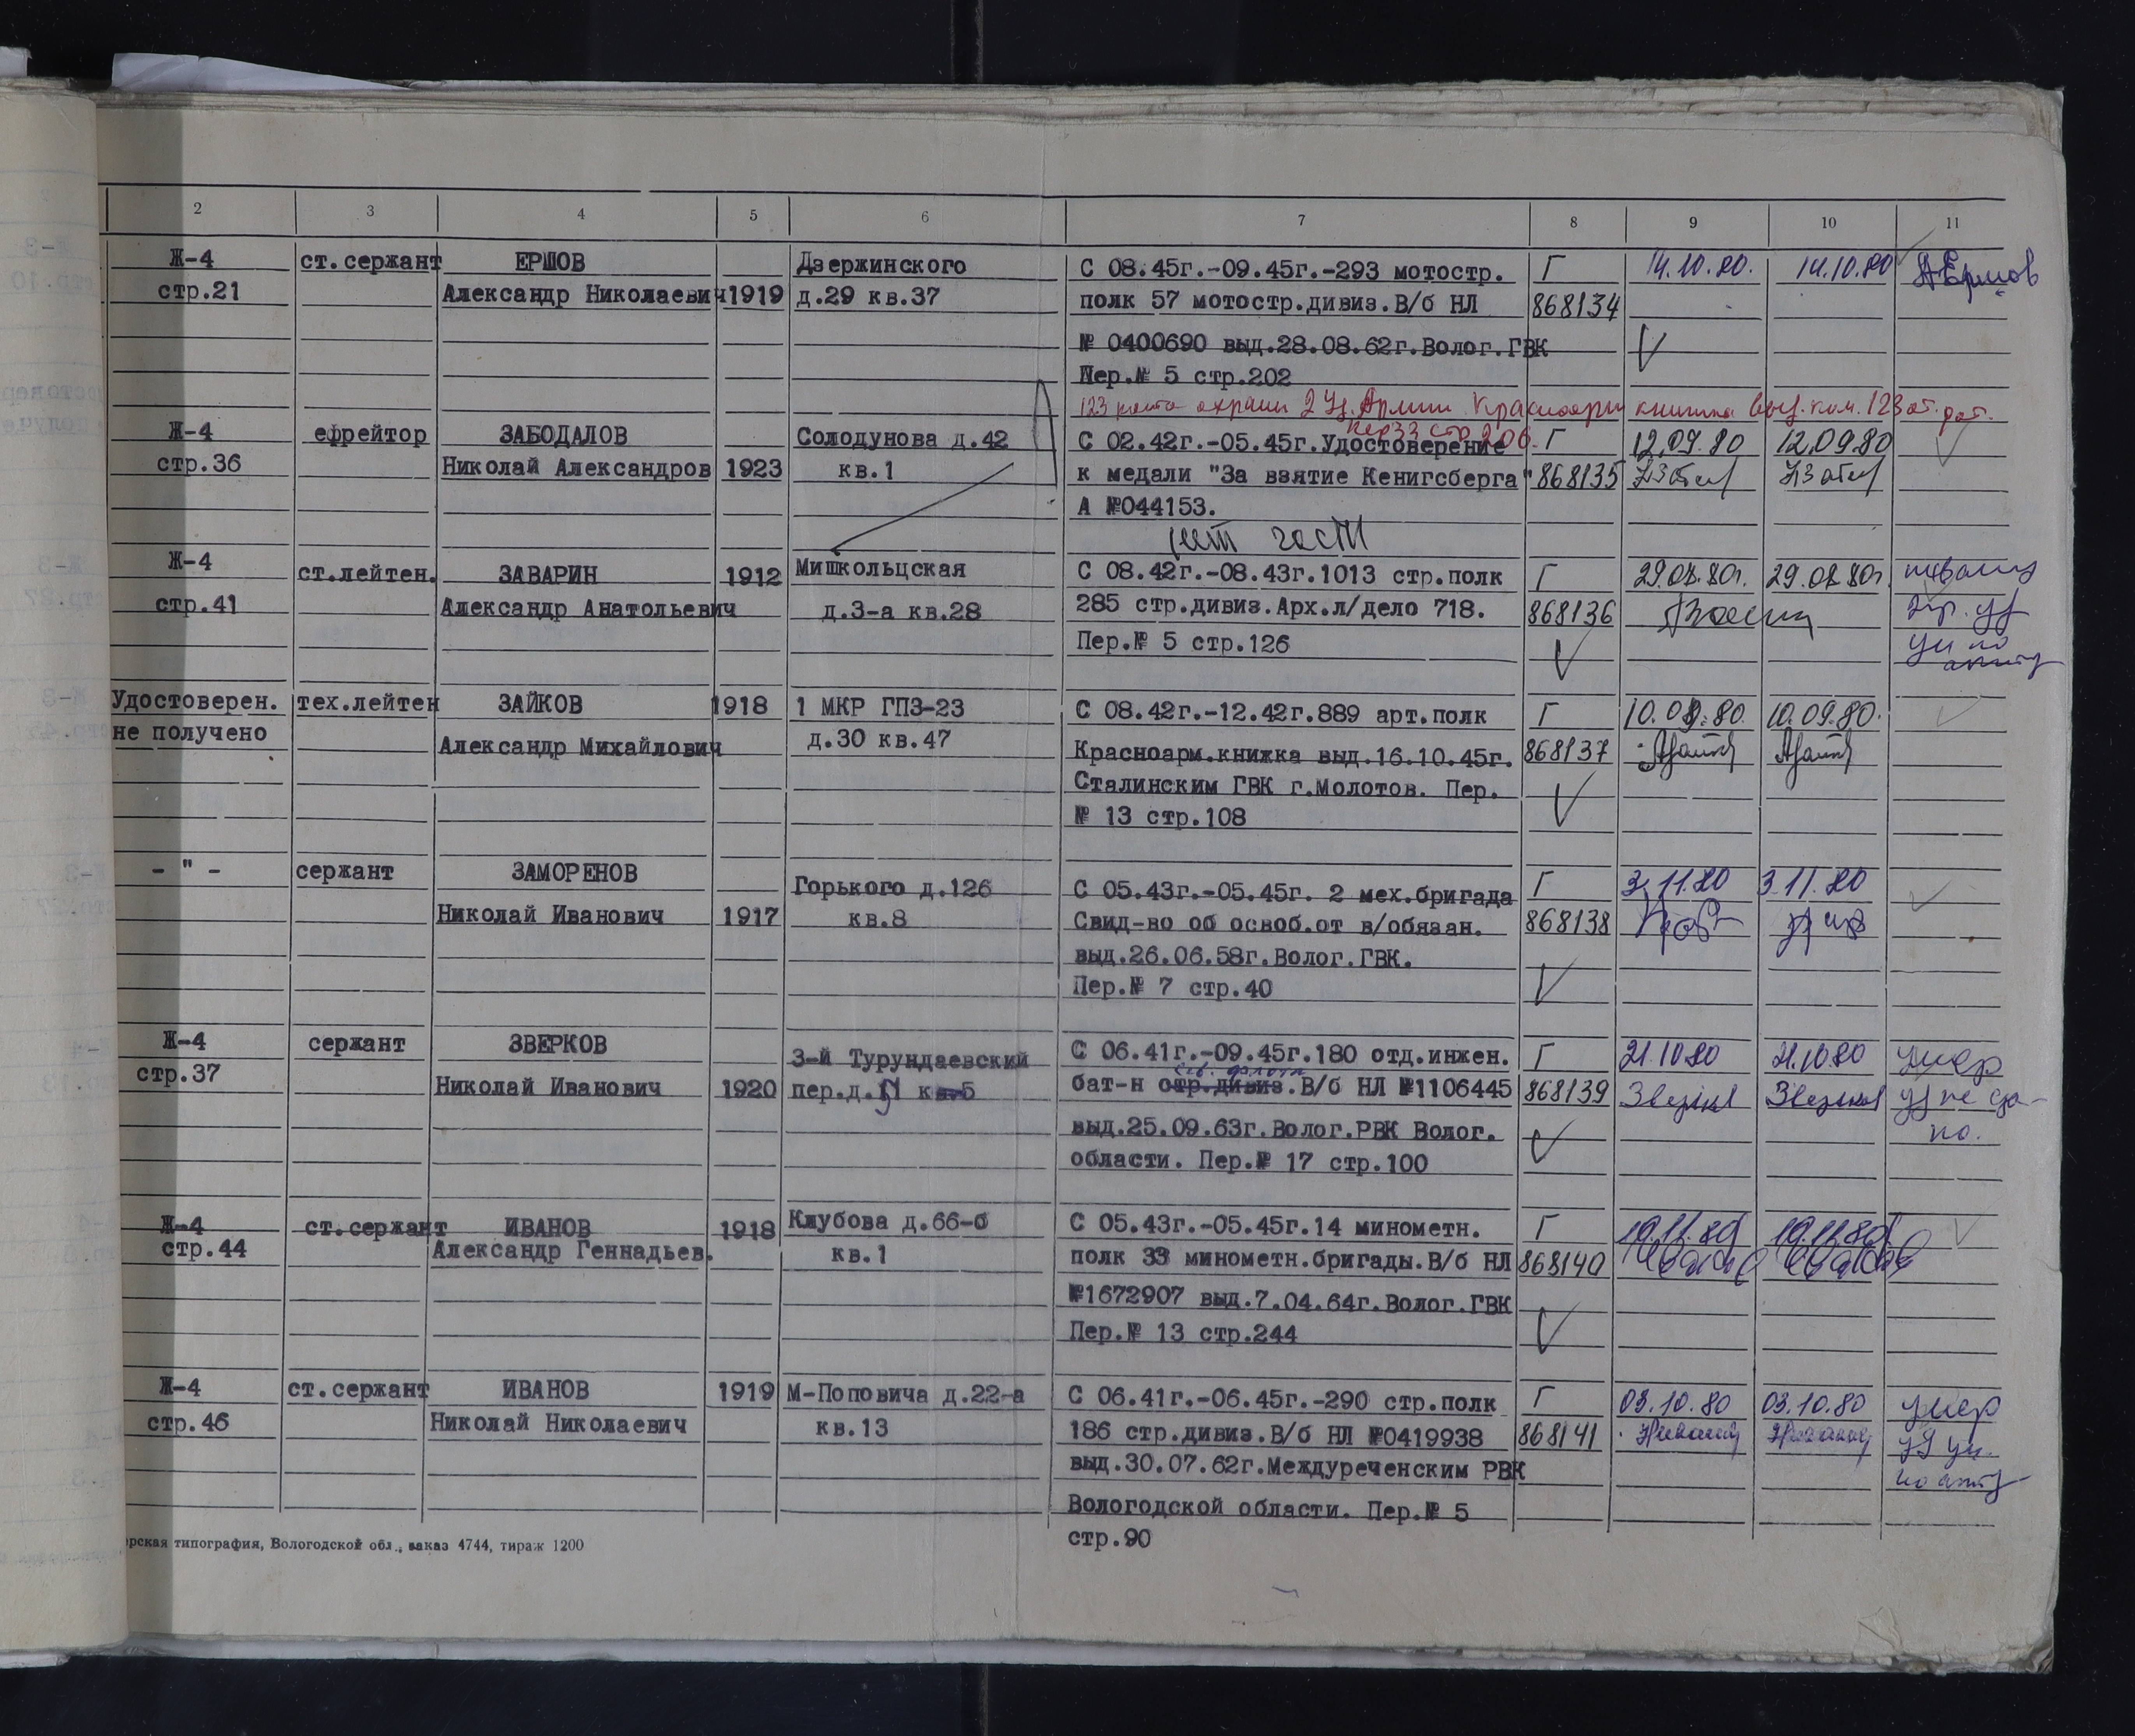 2 3 4 5 6 7 8 9 10 11
Ж-4 ст.сержант ЕРШОВ Дзержинского С 08.45г.-09.45г.-293 мотостр. Г 14.10.80. 14.10.80 Ершов
стр.21 Александр Николаевич 1919 д.29 кв.37 полк 57 мотостр.дивиз.В/б НЛ 868134
№ 0400690 выд.28.08.62г.Волог.ГВК
Пер.№ 5 стр.202
123 рота охраны 2 Уд.Армии Красноарм книжка выд. ком. 123 от. рот.
пер 33 стр 206.
Ж-4 ефрейтор ЗАБОДАЛОВ Солодунова д.42 С 02.42г.-05.45г.Удостоверение Г 12.09.80 12.09.80
стр.36 Николай Александров 1923 кв.1 к медали "За взятие Кенигсберга" 868135
А №044153.
нет части
Ж-4 ст.лейтен. ЗАВАРИН 1912 Мишкольцская С 08.42г.-08.43г.1013 стр.полк Г 29.08.80г. 29.08.80г.
стр.41 Александр Анатольевич д.3-а кв.28 285 стр.дивиз.Арх.л/дело 718. 868136
Пер.№ 5 стр.126
Удостоверен. тех.лейтен ЗАЙКОВ 1918 1 МКР ГПЗ-23 С 08.42г.-12.42г.889 арт.полк Г 10.09.80. 10.09.80.
не получено Александр Михайлович д.30 кв.47 Красноарм.книжка выд.16.10.45г. 868137
Сталинским ГВК г.Молотов. Пер.
№ 13 стр.108
- " - сержант ЗАМОРЕНОВ Горького д.126 С 05.43г.-05.45г. 2 мех.бригада Г 3.11.80 3.11.80
Николай Иванович 1917 кв.8 Свид-во об освоб.от в/обязан. 868138
выд.26.06.58г.Волог.ГВК.
Пер.№ 7 стр.40
Ж-4 сержант ЗВЕРКОВ 3-й Турундаевский С 06.41г.-09.45г.180 отд.инжен. Г 21.10.80 21.10.80 умер
стр.37 Николай Иванович 1920 пер.д. бат-н стр.дивиз.В/б НЛ №1106445 868139 уд не сда-
выд.25.09.63г.Волог.РВК Волог. но.
области. Пер.№ 17 стр.100
Ж-4 ст.сержант ИВАНОВ 1918 Клубова д.66-б С 05.43г.-05.45г.14 минометн. Г 10.11.80 10.11.80
стр.44 Александр Геннадьев. кв.1 полк 33 минометн.бригады.В/б НЛ 868140
№1672907 выд.7.04.64г.Волог.ГВК
Пер.№ 13 стр.244
Ж-4 ст.сержант ИВАНОВ 1919 М-Поповича д.22-а С 06.41г.-06.45г.-290 стр.полк Г 03.10.80 03.10.80 умер
стр.46 Николай Николаевич кв.13 186 стр.дивиз.В/б НЛ №0419938 868141 уд ун.
выд.30.07.62г.Междуреченским РВК по акту
Вологодской области. Пер.№ 5
стр.90
рская типография, Вологодской обл., заказ 4744, тираж 1200